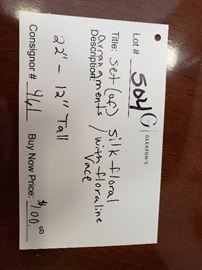 Lot # 504
G | GLEATON'S
Title: Set (of) silk floral
arrangments / with floraline
Description: vace
22" - 12" Tall
Consignor # 961 Buy Now Price: $100.00